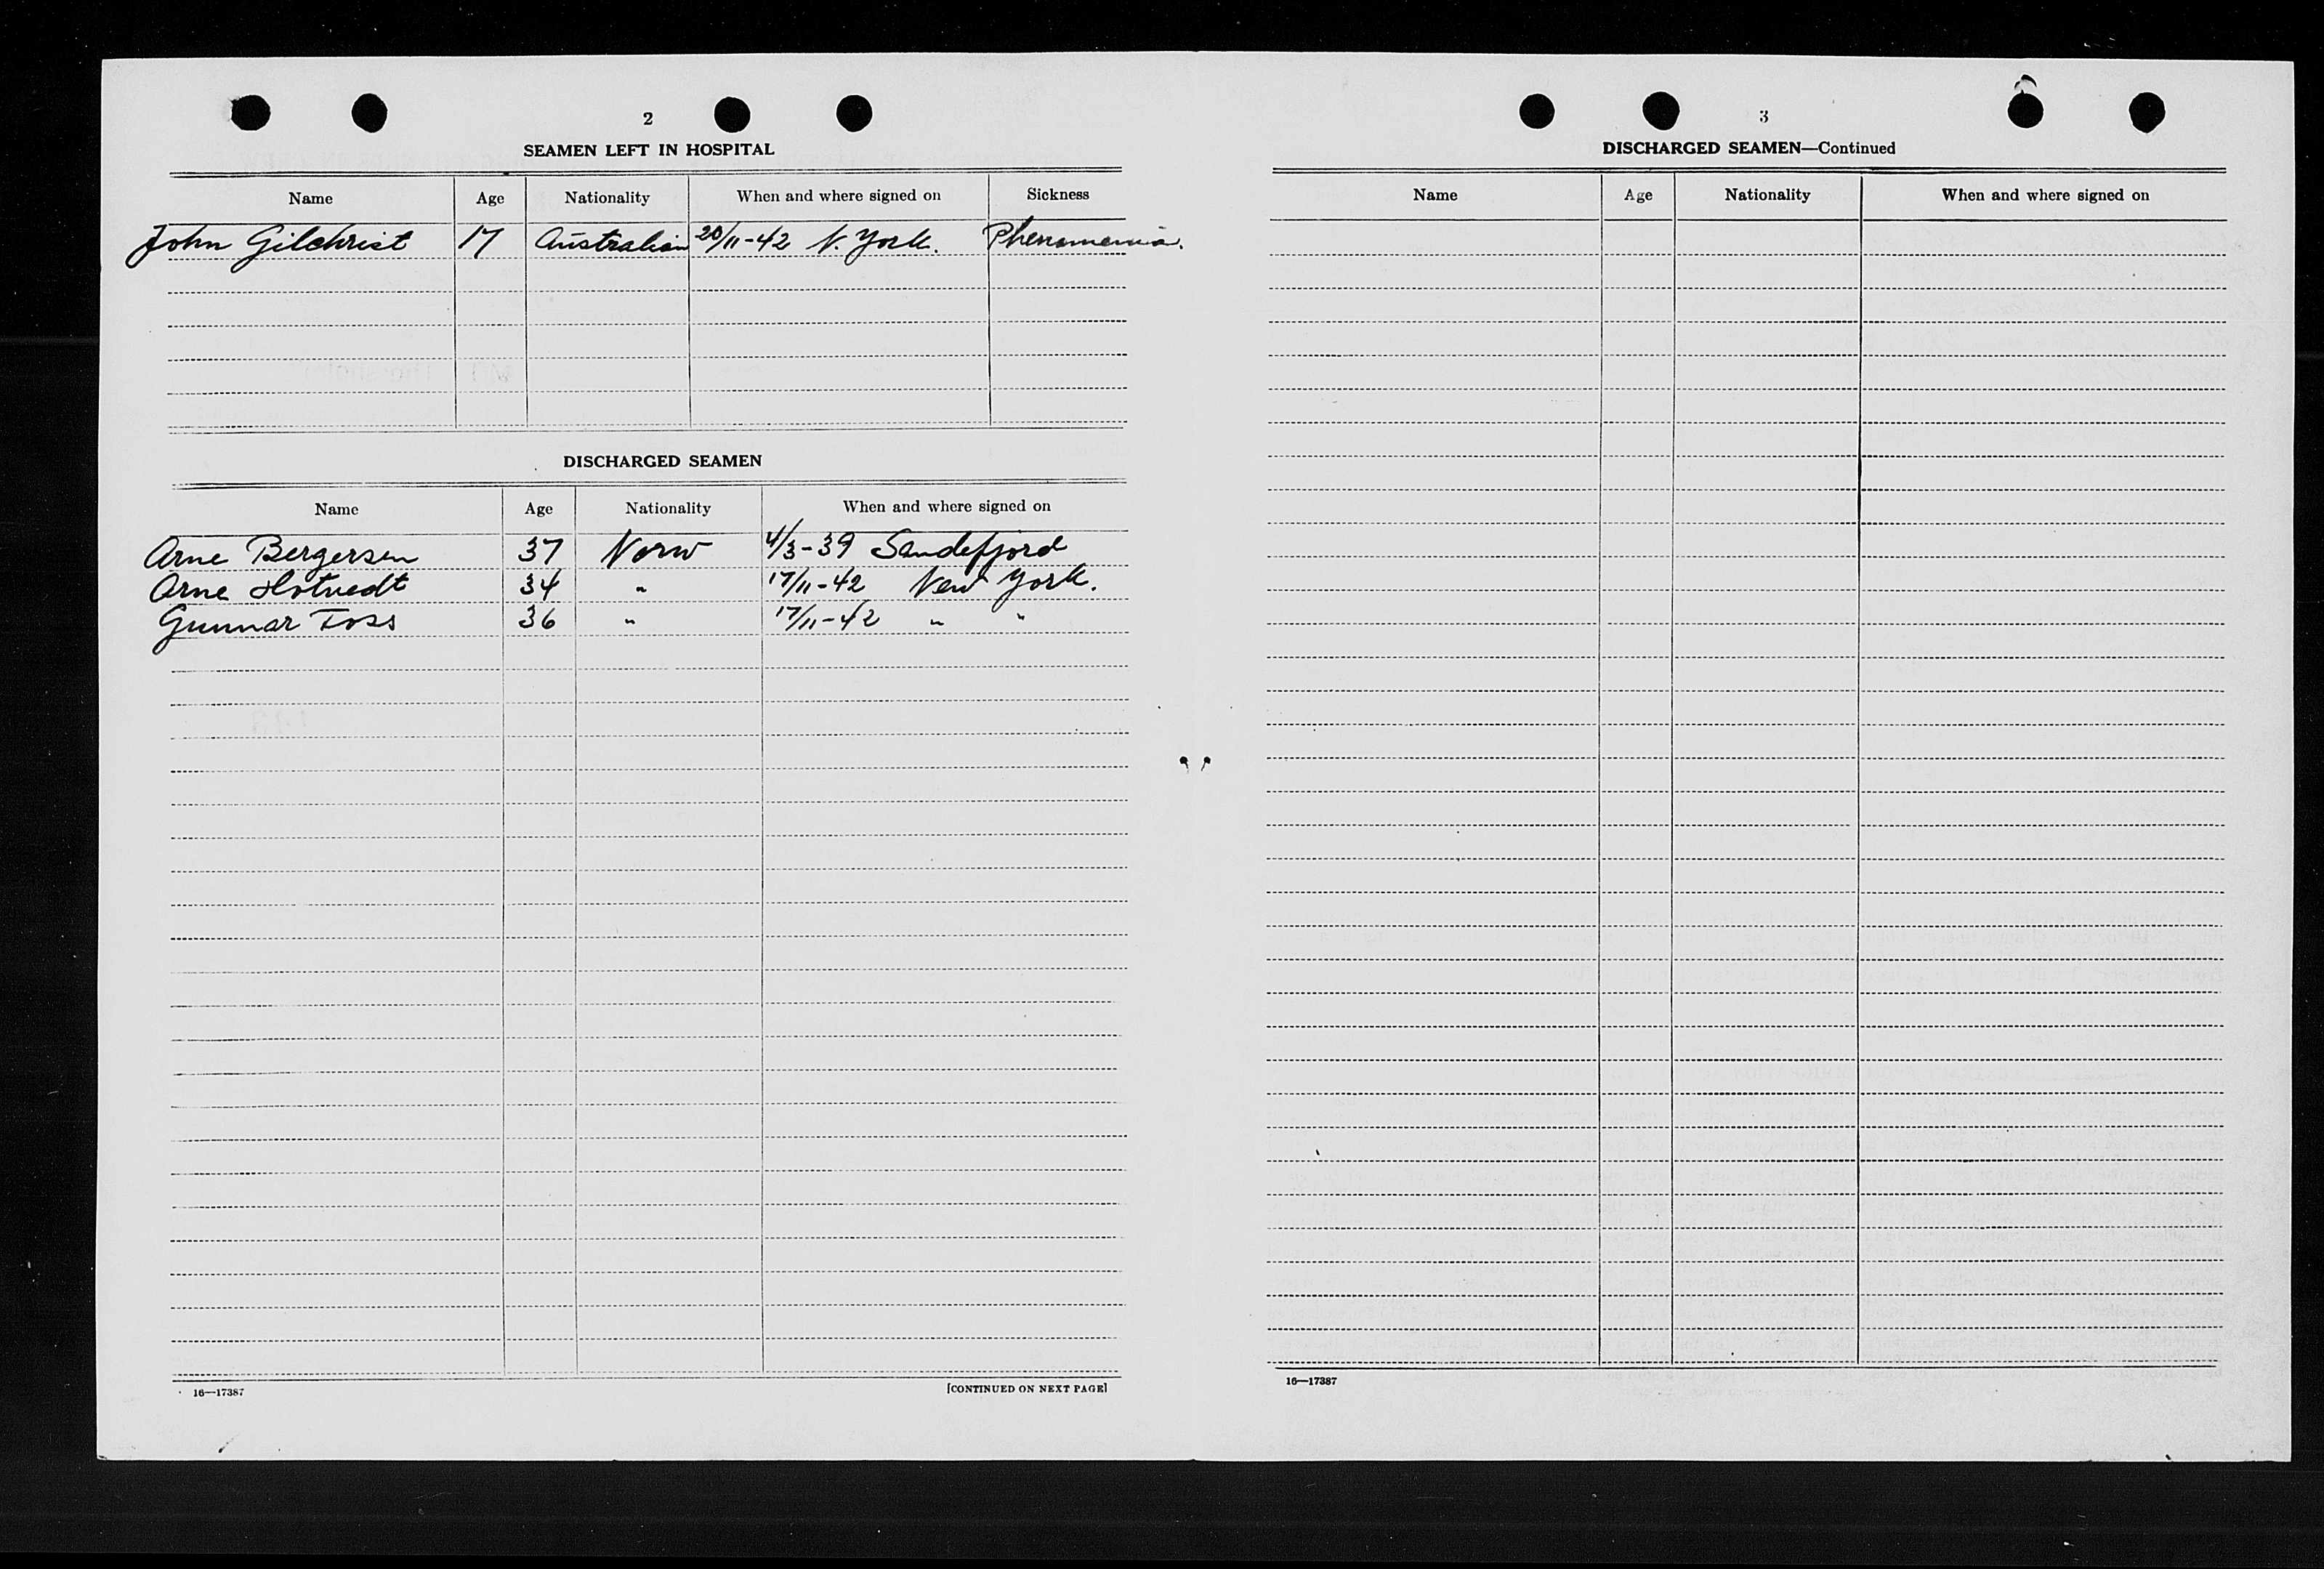 2
SEAMEN LEFT IN HOSPITAL
Name Age Nationality When and where signed on Sickness
John Gilchrist 17 Australian 20/11-42 N. York. Phenomenia.
DISCHARGED SEAMEN
Name Age Nationality When and where signed on
Arne Bergersen 37 Norw 4/3-39 Sandefjord
Arne Hotvedt 34 " 17/11-42 New York.
Gunnar Foss 36 " 17/11-42 " "
16—17387 [CONTINUED ON NEXT PAGE]
3
DISCHARGED SEAMEN—Continued
Name Age Nationality When and where signed on
16—17387